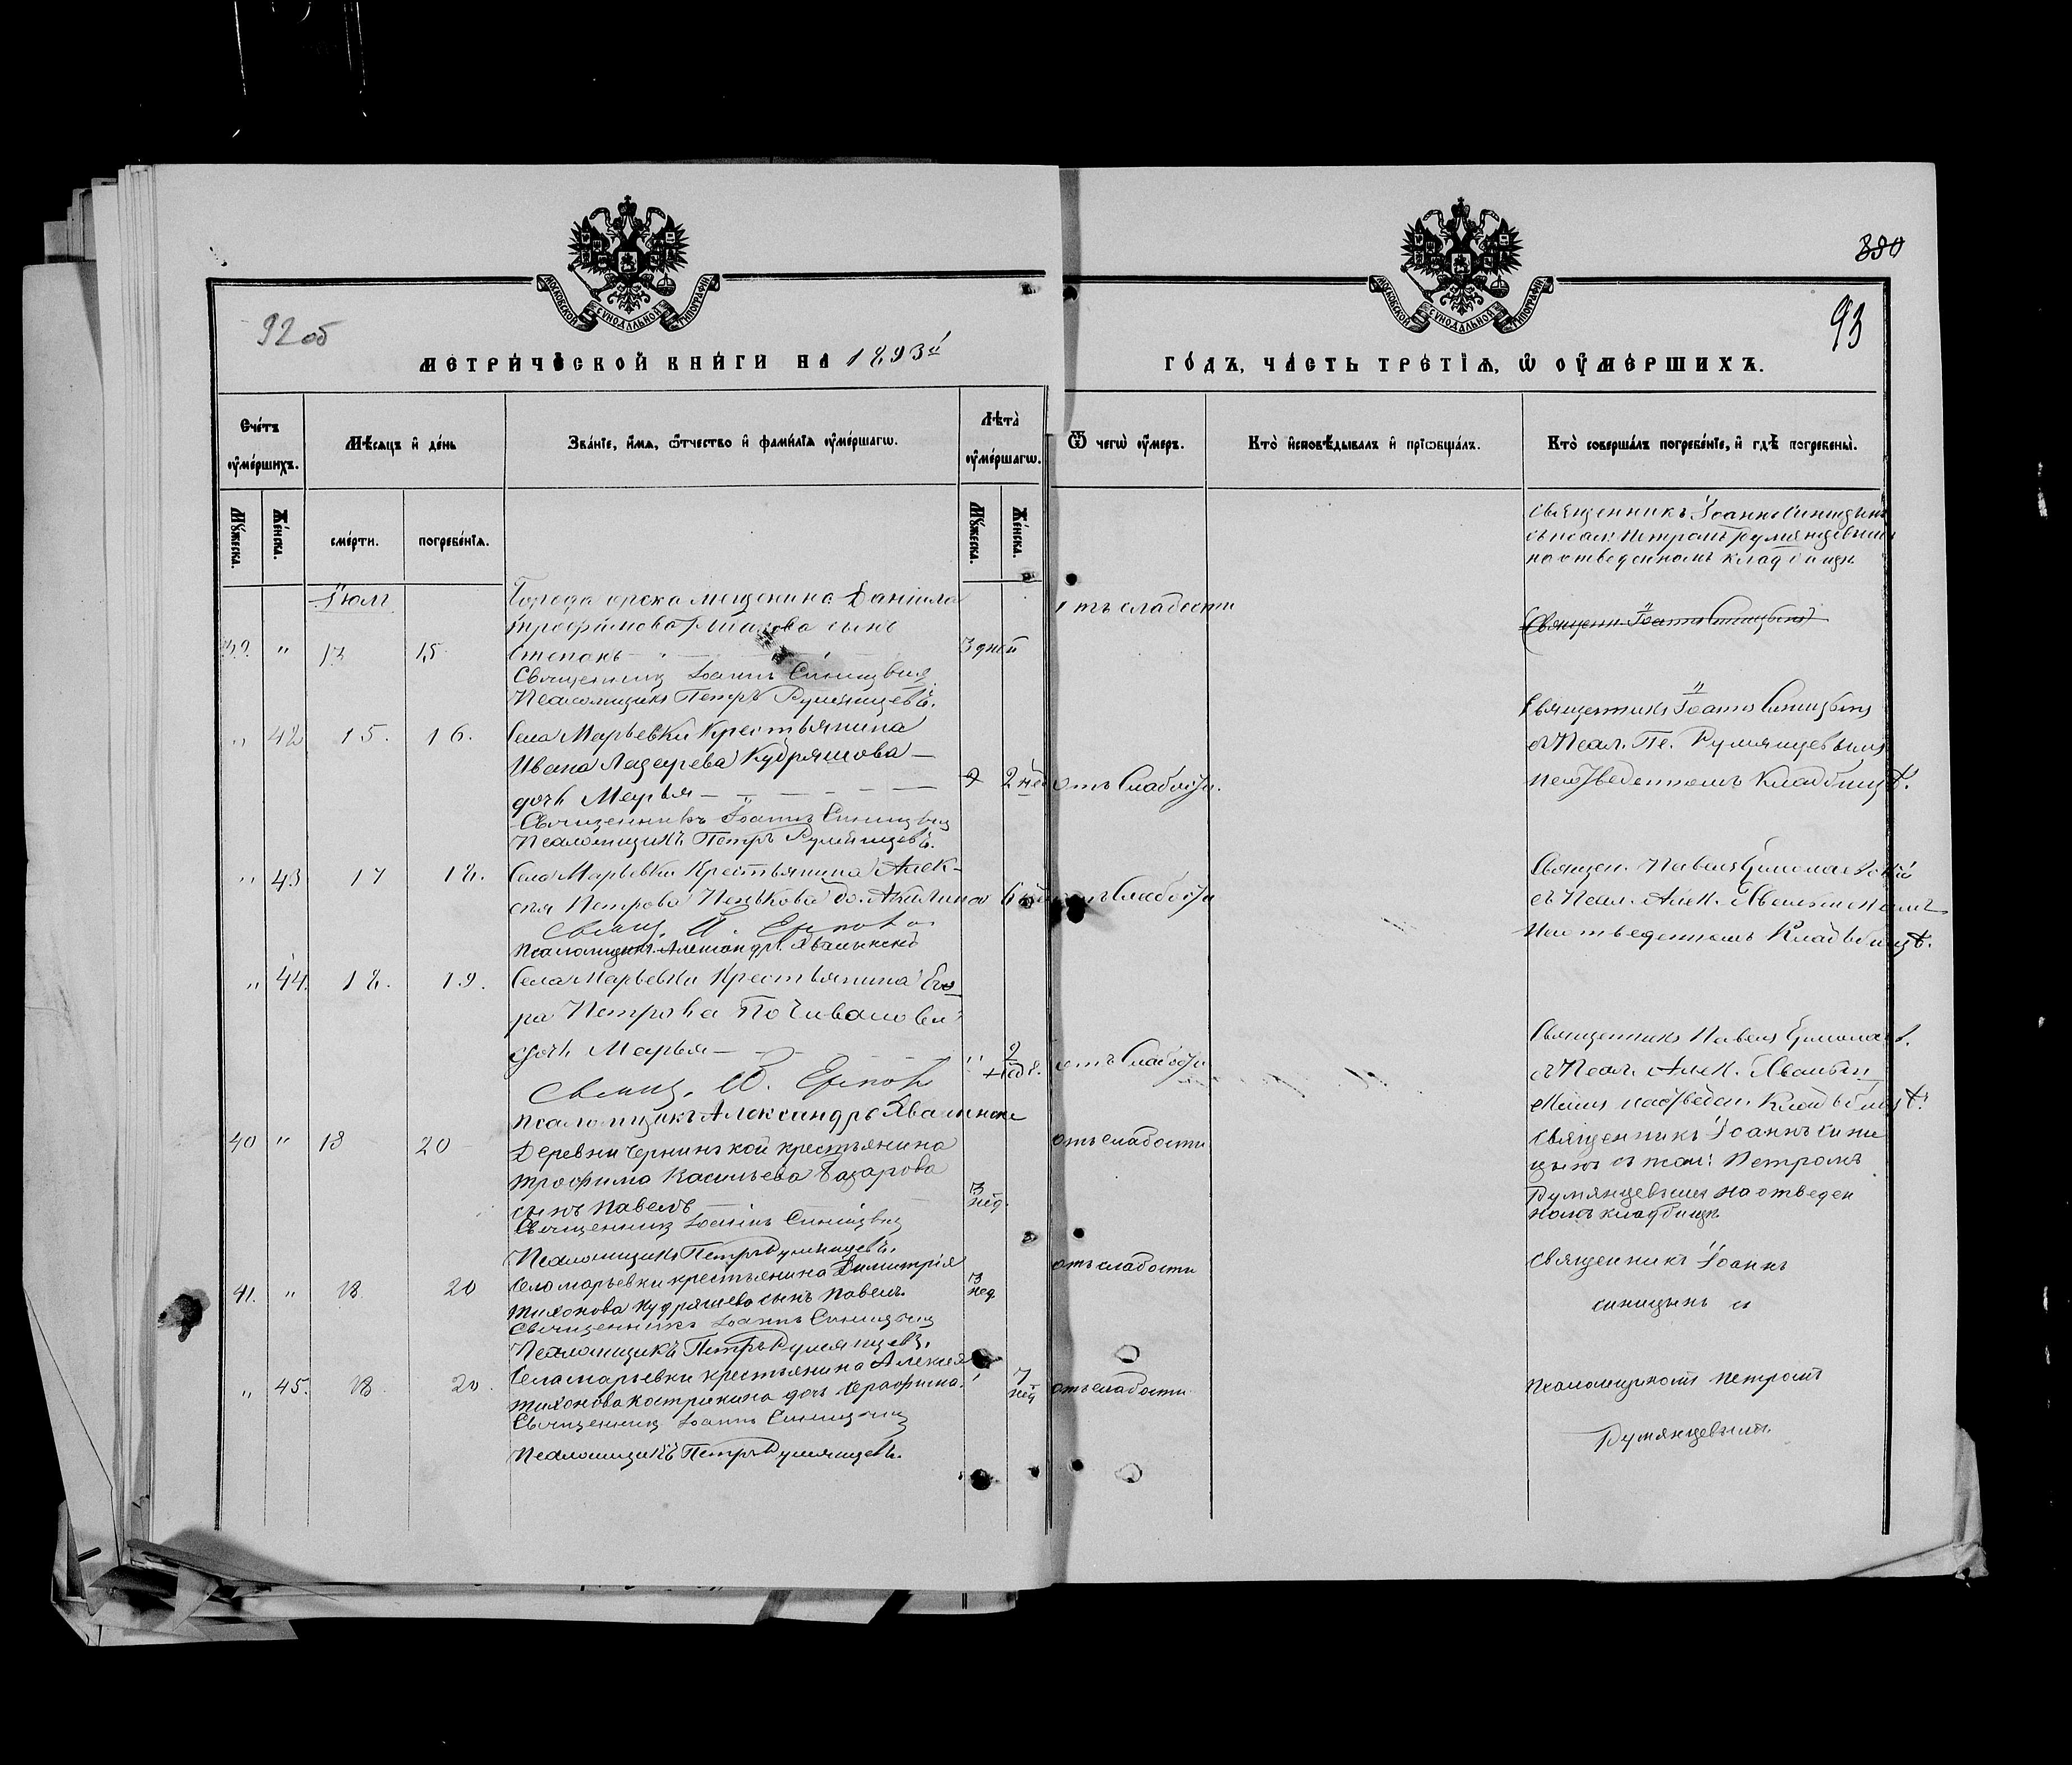 МОСКОВСКОЙ СУНОДАЛЬНОЙ ТИПОГРАФІИ
МОСКОВСКОЙ СУНОДАЛЬНОЙ ТИПОГРАФІИ
380
92 об
93
МЕТРИЧЕСКОЙ КНИГИ НА 1893й
ГОДЪ, ЧАСТЬ ТРЕТІѦ, Ѡ ОУМЕРШИХЪ.
Счетъ оумершихъ.
Мѣсяцъ и день
Званіе, имя, ѿчество и фамилія оумершагѡ.
Лѣта оумершагѡ.
Ѿ чегѡ оумеръ.
Кто исповѣдывалъ и пріѡбщалъ.
Кто совершалъ погребеніе, и гдѣ погребены.
Мужеска.
Женска.
смерти.
погребенія.
Мужеска.
Женска.
Священникъ Іоаннъ Синицынъ
съ псал: Петромъ Румянцевымъ
на отведенномъ кладбищѣ
Іюль
Города орска мещенина Даніила
отъ слабости
трофимова сынъ
Священ Іоаннъ Синицынъ
39 " 13 15 Степанъ 3 дней
Священникъ Іоаннъ Синицынъ
Псаломщикъ Петръ Румянцевъ.
Священникъ Іоаннъ Синицынъ
" 42 15. 16. Села Марьевки Крестьянина
съ Псал. Пе. Румянцевымъ
Ивана Лазарева Кудряшова —
дочь Марья — 2 нед отъ Слабости.
на отведенномъ Кладбищѣ.
Священникъ Іоаннъ Синицынъ
Псаломщикъ Петръ Румянцевъ.
" 43 17 18. Села Марьевки Крестьянина Алек-
Священ. Павелъ
сѣя Петрова Пенькова до. Акилина 6 отъ Слабости
съ Псал. Алек.
Псаломщикъ Александръ
на отведенномъ Кладбищѣ.
" 44. 18. 19. Села Марьевки Крестьянина Его
ра Петрова Почивалова
Священникъ Павелъ
дочь Марья — " 2 нед. отъ Слабости
съ Псал. Алек.
на отведен. Кладбищѣ.
Псаломщикъ Александръ
40 " 18 20 Деревни чернинской крестьянина
отъ слабости
Священникъ Іоаннъ Сини
трофима Васильева Базарова
цынъ съ псал: Петромъ
сынъ Павелъ 3 нед.
Румянцевымъ на отведен
Священникъ Іоаннъ Синицынъ
номъ кладбищѣ
Псаломщикъ Петръ Румянцевъ.
41. " 18 20 Села марьевки крестьянина Димитрія
3 нед
отъ слабости
Священникъ Іоаннъ
тихонова кудряшева сынъ Павелъ.
синицынъ съ
Священникъ Іоаннъ Синицынъ
Псаломщикъ Петръ Румянцевъ.
" 45. 18 20. Села марьевки крестьянина Алексея
7 нед отъ слабости
псаломщикомъ петромъ
тихонова кострикина дочь Серафима.
Священникъ Іоаннъ Синицынъ
Румянцевымъ.
Псаломщикъ Петръ Румянцевъ.